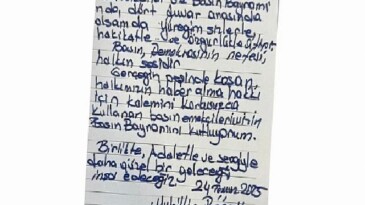 Basın Bayramı
nda, dört duvar arasında
olsamda yüreğim sizlerle
hakikatle ve özgürlükle
Basın, Demokrasinin nefesi,
halkın sesidir
Gerçeğin peşinde koşan,
halkımızın haber alma hakkı
için kalemini korkusuzca
kullanan basın emekçilerimizin
Basın Bayramını kutluyorum.
Birlikte, Adaletle ve sevgiyle
daha güzel bir geleceği
inşa edeceğiz
24 Temmuz 2025